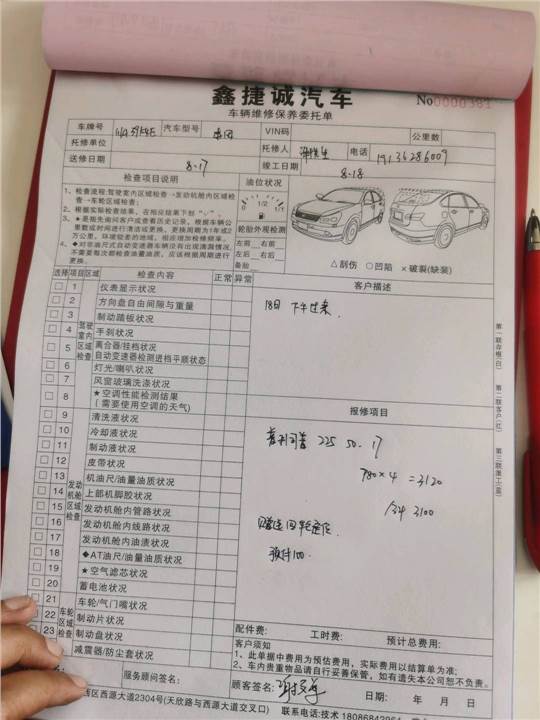 鑫捷诚汽车
No0000381
车辆维修保养委托单
车牌号 汽车型号 VIN码 公里数
托修单位 托修人 电话 19136286009
送修日期 8-17 竣工日期 8-18
检查项目说明 油位状况
1、检查流程:驾驶室内区域检查→发动机舱内区域检查→车轮区域检查;
2、根据实际检查结果,在相应结果下划"✓"。
0 1/2 1/1
轮胎外观检测
左前 右前
左后 右后
备胎
△刮伤 ○凹陷 ×破裂(缺装)
选择 项目 区域 检查内容 正常 异常 客户描述
驾驶室内区域检查
1 仪表显示状况
2 方向盘自由间隙与重量
3 制动踏板状况
4 手刹状况
5 离合器/挂档状况
自动变速器检测进档平顺状态
6 灯光/喇叭状况
7 风窗玻璃洗涤状况
8 ★空调性能检测结果
(需要使用空调的天气)
18日 下午过来.
报修项目
发动机舱区域检查
9 清洗液状况
10 冷却液状况
11 制动液状况
12 皮带状况
13 机油尺/油量油质状况
14 上部机脚胶状况
15 发动机舱内管路状况
16 发动机舱内线路状况
17 发动机舱内油渍状况
18 ◆AT油尺/油量油质状况
19 ★空气滤芯状况
20 蓄电池状况
225 50.17
780×4 =3120
3100
赠送四轮定位
预付100.
车轮区域检查
21 车轮/气门嘴状况
22 制动片状况
23 制动盘状况
减震器/防尘套状况
第一联存根(白) 第二联客户(红) 第三联施工(蓝)
配件费: 工时费: 预计总费用:
客户须知
1、此单据中费用为预估费用,实际费用以结算单为准;
2、车内贵重物品请自行妥善保管,如有遗失本公司恕不负责。
服务顾问签名: 顾客签名: 日期: 年 月 日
西区西源大道2304号(天欣路与西源大道交叉口) 联系电话:技术